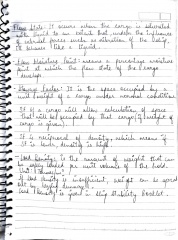 Flow State: It occurs when the cargo is saturated
with liquid to an extent that under the influence
of external forces such as vibration of the ship
it behaves like a liquid.
Flow Moisture Point: means a percentage moisture
point at which the flow state of the cargo
develops
Stowage Factor: It is the space occupied by a
unit weight of a cargo under normal conditions.
If of a cargo will allow calculation of space
that will be occupied by that cargo (if weight of
cargo is given).
It is reciprocal of density, which means if
is low, density is high.
Load Density: is the amount of weight that can
be safely loaded per unit volume of the hold.
Unit: (Tonnes/
If load density is insufficient, weight can be spread
out by
Load Density is given in Ship Stability Booklet.